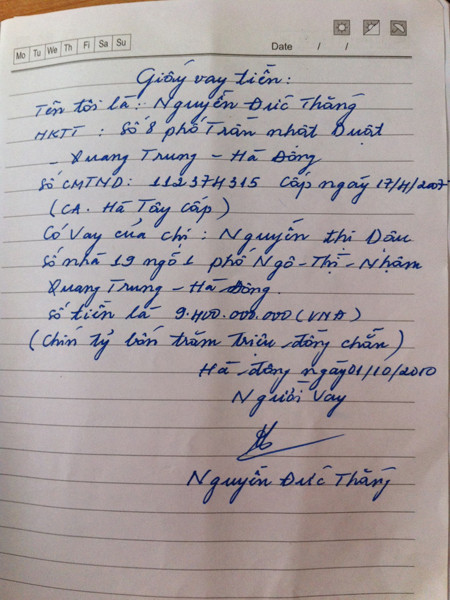 Mo Tu We Th Fi Sa Su
Date / /
Giấy vay tiền:
Tên tôi là: Nguyễn Đức Thắng
HKTT : Số 8 phố Trần Nhật Duật
- Quang Trung - Hà Đông
Số CMTND: 112374315 Cấp ngày 17/4/2007
(CA. Hà Tây cấp)
Có vay của chị: Nguyễn thị Dậu
Số nhà 19 ngõ 1 phố Ngô - Thị - Nhậm
Quang Trung - Hà Đông.
Số tiền là 9.400.000.000 (VNĐ)
(Chín tỷ bốn trăm triệu đồng chẵn)
Hà - đông ngày 01/10/2010
Người vay
Nguyễn Đức Thắng